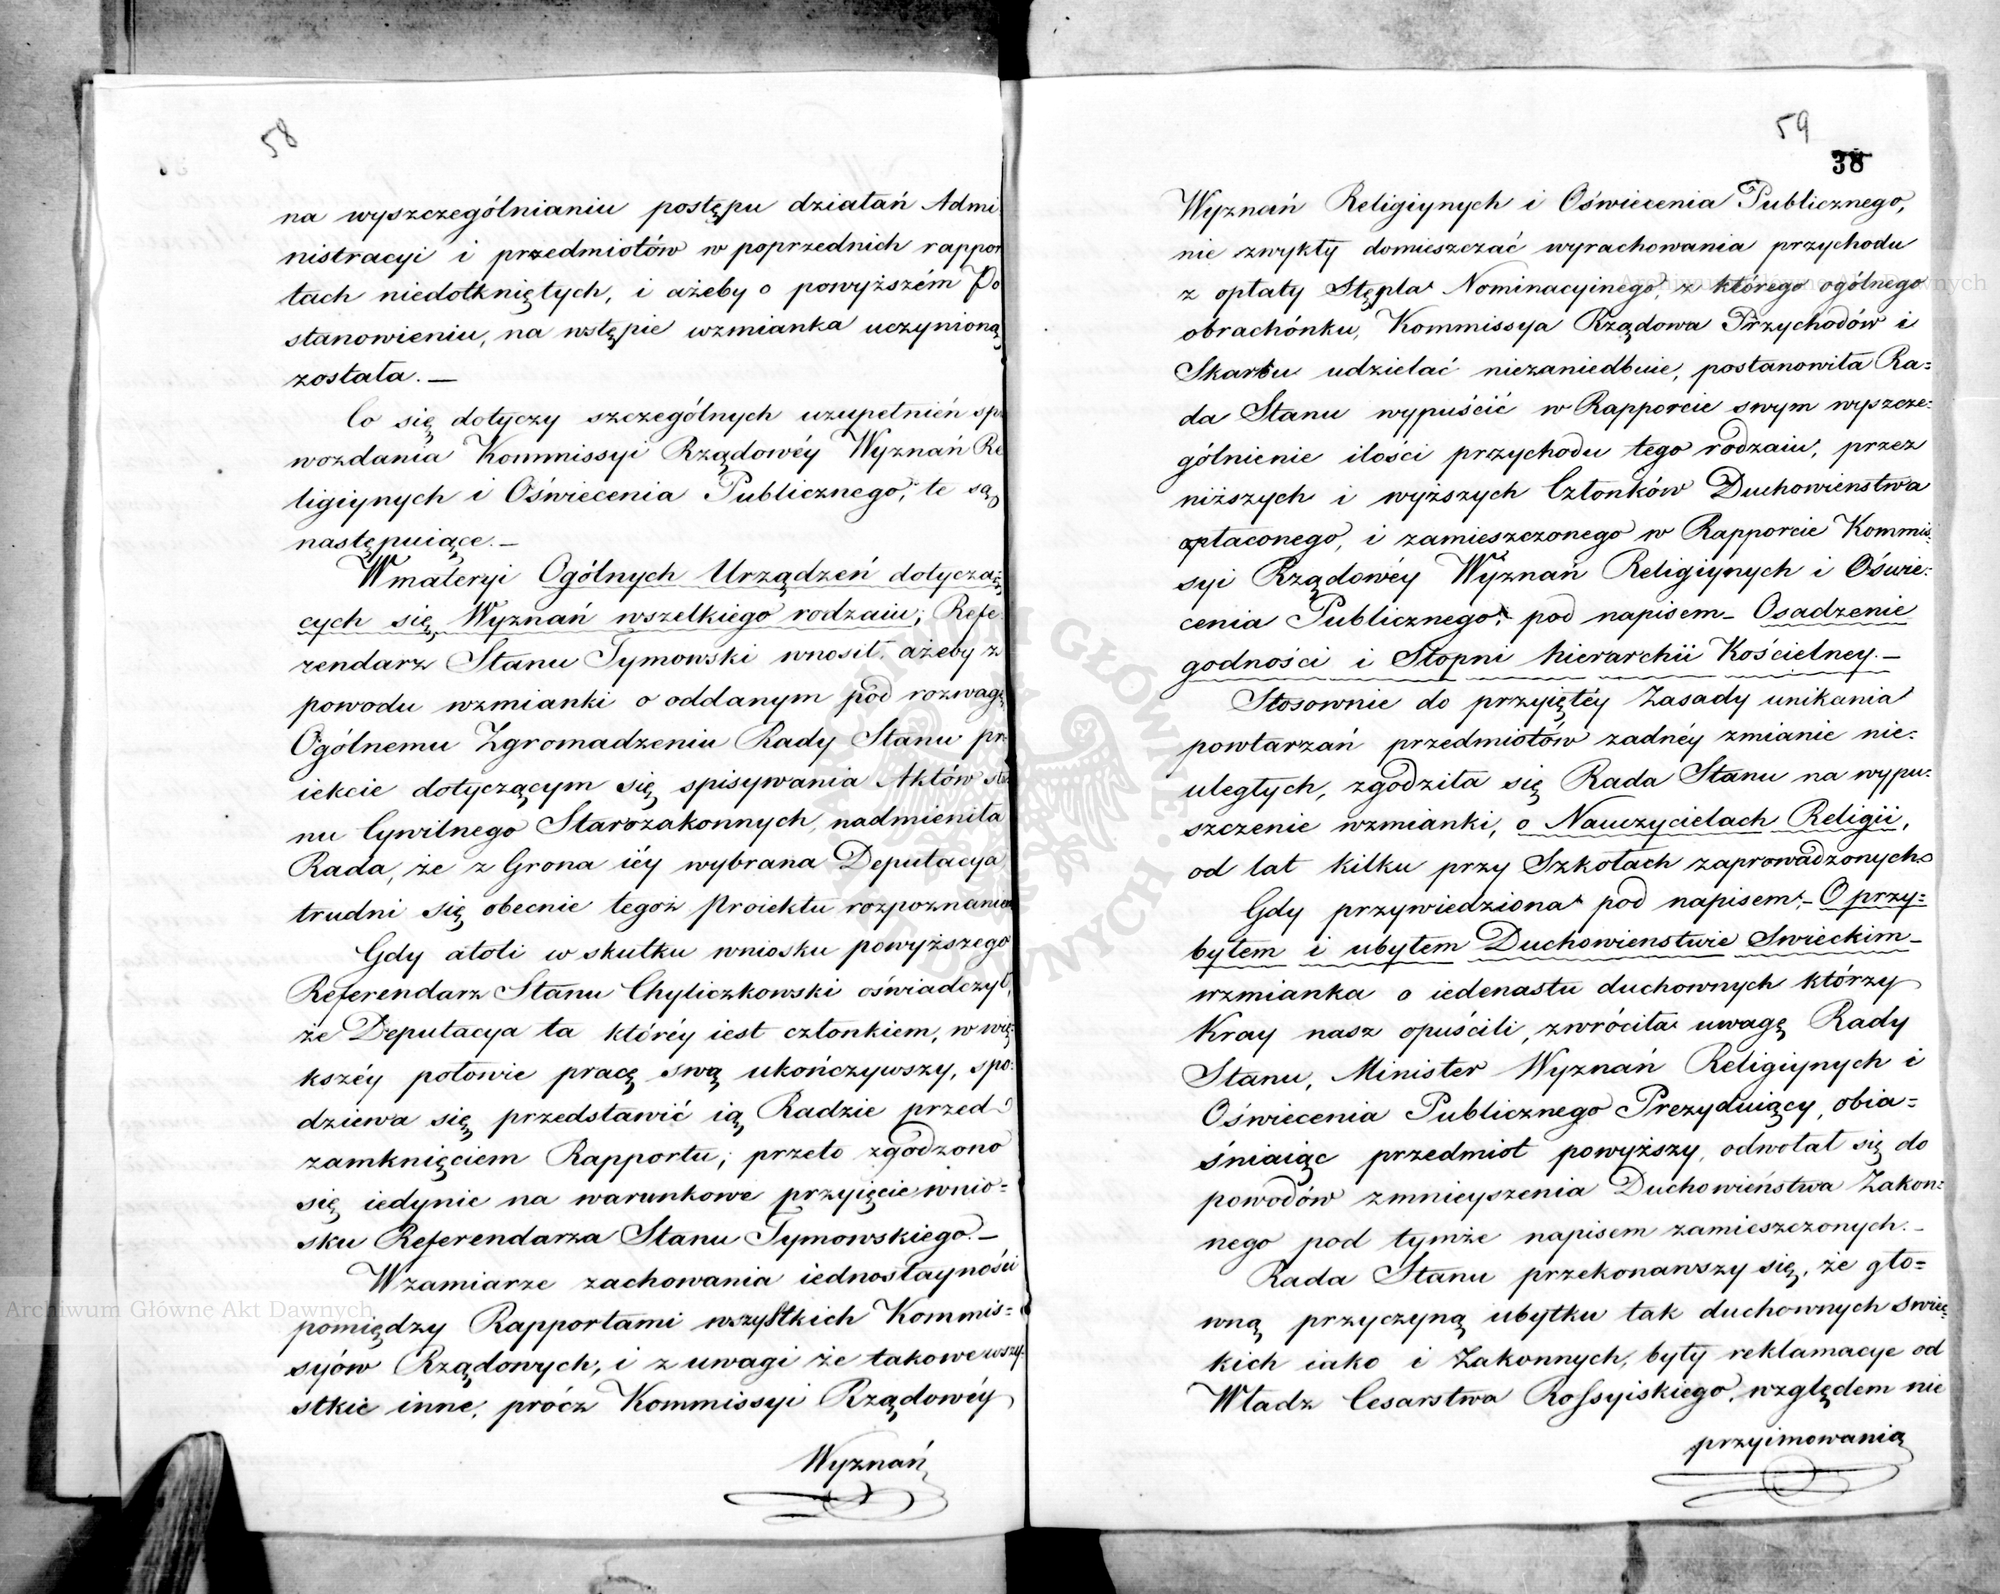 58
na wyszczególnianiu postępu działań Admi
nistracyi i przedmiotów w poprzednich rappor
tach niedotkniętych, i ażeby o powyższém Po
stanowieniu, na wstępie wzmianka uczynioną
została. —
Co się dotyczy szczególnych uzupełnień spr
wozdania Kommissyi Rządowéy Wyznań Re
ligiynych i Oświecenia Publicznego, te są
następuiące. —
W materyi Ogólnych Urządzeń dotyczą=
cych się Wyznań wszelkiego rodzaiu; Refe
rendarz Stanu Tymowski wnosił, ażeby z
powodu wzmianki o oddanym pod rozwagę
Ogólnemu Zgromadzeniu Rady Stanu pr
iekcie dotyczącym się spisywania Aktów sta
nu Cywilnego Starozakonnych, nadmieniła
Rada, że z Grona iéy wybrana Deputacya
trudni się obecnie tegoż Proiektu rozpoznaniem
Gdy atoli w skutku wniosku powyższego
Referendarz Stanu Chyliczkowski oświadczył,
że Deputacya ta któréy iest członkiem, w wię=
kszéy połowie pracę swą ukończywszy, spo=
dziewa się przedstawić ią Radzie przed
zamknięciem Rapportu; przeto zgodzono
się iedynie na warunkowe przyięcie wnio=
sku Referendarza Stanu Tymowskiego. —
W zamiarze zachowania iednostayności
pomiędzy Rapportami wszystkich Kommis=
syiów Rządowych, i z uwagi że takowe wszy=
stkie inne, prócz Kommissyi Rządowéy
Wyznań
59
38
Wyznań Religiynych i Oświecenia Publicznego,
nie zwykły domieszczać wyrachowania przychodu
z opłaty Stępla Nominacyinego, z którego ogólnego
obrachónku, Kommissya Rządowa Przychodów i
Skarbu udzielać niezaniedbuie, postanowiła Ra=
da Stanu wypuścić w Rapporcie swym wyszcze=
gólnienie ilości przychodu tego rodzaiu, przez
niższych i wyższych Członków Duchowienstwa
opłaconego, i zamieszczonego w Rapporcie Kommis=
syi Rządowéy Wyznań Religiynych i Oświe=
cenia Publicznego, pod napisem — Osadzenie
godności i Stopni hierarchii Kościelney. —
Stosownie do przyiętéy Zasady unikania
powtarzań przedmiotów żadnéy zmianie nie=
uległych, zgodziła się Rada Stanu na wypu=
szczenie wzmianki, o Nauczycielach Religii,
od lat kilku przy Szkołach zaprowadzonych.
Gdy przywiedziona pod napisem, — O przy=
byłem i ubyłem Duchowienstwie Swieckim —
wzmianka o iedenastu duchownych którzy
Kray nasz opuścili, zwróciła uwagę Rady
Stanu, Minister Wyznań Religiynych i
Oświecenia Publicznego Prezyduiący, obia=
śniaiąc przedmiot powyższy, odwołał się do
powodów zmnieyszenia Duchowieństwa Zakon=
nego pod tymże napisem zamieszczonych. —
Rada Stanu przekonawszy się, że głó=
wną przyczyną ubytku tak duchownych swiec=
kich iako i Zakonnych, były reklamacye od
Władz Cesarstwa Rossyiskiego, względem nie
przyimowania
Archiwum Główne Akt Dawnych
Archiwum Główne Akt Dawnych
ARCHIWUM GŁÓWNE AKT DAWNYCH